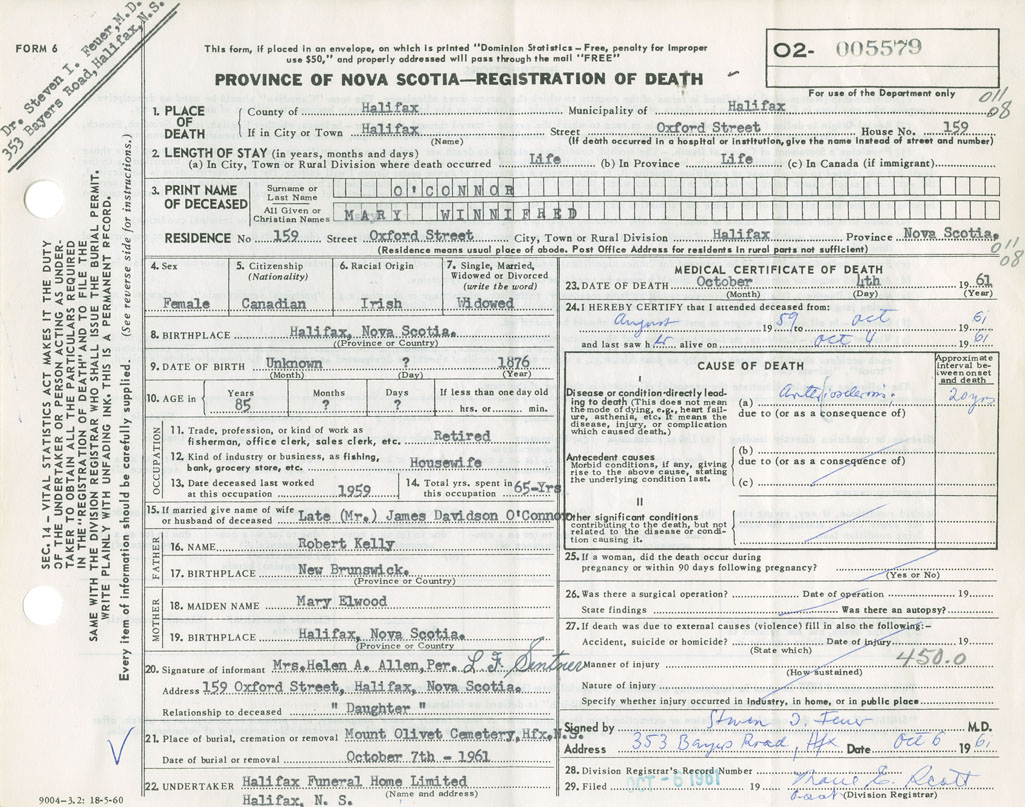 Dr. Steven I. Feuer, M.D.
353 Bayers Road, Halifax, N.S.
FORM 6
This form, if placed in an envelope, on which is printed "Dominion Statistics – Free, penalty for improper
use $50," and properly addressed will pass through the mail "FREE"
PROVINCE OF NOVA SCOTIA—REGISTRATION OF DEATH
02- 005579
For use of the Department only
011
08
1. PLACE OF DEATH
County of Halifax Municipality of Halifax
If in City or Town Halifax Street Oxford Street House No. 159
(Name) (If death occurred in a hospital or institution, give the name instead of street and number)
2. LENGTH OF STAY (in years, months and days)
(a) In City, Town or Rural Division where death occurred Life (b) In Province Life (c) In Canada (if immigrant)
3. PRINT NAME OF DECEASED
Surname or Last Name O'CONNOR
All Given or Christian Names MARY WINNIFRED
RESIDENCE No 159 Street Oxford Street City, Town or Rural Division Halifax Province Nova Scotia.
(Residence means usual place of abode. Post Office Address for residents in rural parts not sufficient)
011
08
SEC. 14 – VITAL STATISTICS ACT MAKES IT THE DUTY
OF THE UNDERTAKER OR PERSON ACTING AS UNDER-
TAKER TO OBTAIN ALL THE PARTICULARS REQUIRED
IN THE "REGISTRATION OF DEATH" AND TO FILE THE
SAME WITH THE DIVISION REGISTRAR WHO SHALL ISSUE THE BURIAL PERMIT.
WRITE PLAINLY WITH UNFADING INK. THIS IS A PERMANENT RECORD.
Every item of information should be carefully supplied. (See reverse side for instructions.)
4. Sex
Female
5. Citizenship
(Nationality)
Canadian
6. Racial Origin
Irish
7. Single, Married,
Widowed or Divorced
(write the word)
Widowed
8. BIRTHPLACE Halifax, Nova Scotia.
(Province or Country)
9. DATE OF BIRTH Unknown ? 1876
(Month) (Day) (Year)
10. AGE in
Years Months Days If less than one day old
85 ? ? hrs. or min.
OCCUPATION
11. Trade, profession, or kind of work as
fisherman, office clerk, sales clerk, etc. Retired
12. Kind of industry or business, as fishing,
bank, grocery store, etc. Housewife
13. Date deceased last worked
at this occupation 1959
14. Total yrs. spent in
this occupation 65-Yrs
15. If married give name of wife
or husband of deceased Late (Mr.) James Davidson O'Connor
FATHER
16. NAME Robert Kelly
17. BIRTHPLACE New Brunswick.
(Province or Country)
MOTHER
18. MAIDEN NAME Mary Elwood
19. BIRTHPLACE Halifax, Nova Scotia.
(Province or Country
20. Signature of informant Mrs. Helen A. Allen, Per. L F
Address 159 Oxford Street, Halifax, Nova Scotia.
Relationship to deceased " Daughter "
21. Place of burial, cremation or removal Mount Olivet Cemetery, Hfx, N.S.
Date of burial or removal October 7th - 1961
22. UNDERTAKER Halifax Funeral Home Limited
(Name and address)
Halifax, N. S.
9004-3.2: 18-5-60
MEDICAL CERTIFICATE OF DEATH
23. DATE OF DEATH October 4th 19 61
(Month) (Day) (Year)
24. I HEREBY CERTIFY that I attended deceased from:
August 19 59 to Oct 19 61
and last saw h er alive on Oct 4 19 61
CAUSE OF DEATH
Approximate
interval be-
tween onset
and death
I
Disease or condition directly lead-
ing to death (This does not mean
the mode of dying, e.g., heart fail-
ure, asthenia, etc. It means the
disease, injury, or complication
which caused death.)
(a) Arteriosclerosis 20 yrs
due to (or as a consequence of)
Antecedent causes
Morbid conditions, if any, giving
rise to the above cause, stating
the underlying condition last.
(b)
due to (or as a consequence of)
(c)
II
Other significant conditions
contributing to the death, but not
related to the disease or condi-
tion causing it.
25. If a woman, did the death occur during
pregnancy or within 90 days following pregnancy?
(Yes or No)
26. Was there a surgical operation? Date of operation 19
State findings Was there an autopsy?
27. If death was due to external causes (violence) fill in also the following:–
Accident, suicide or homicide? Date of injury 19
(State which)
450.0
Manner of injury
(How sustained)
Nature of injury
Specify whether injury occurred in industry, in home, or in public place
Signed by Steven I. Feuer M.D.
Address 353 Bayers Road, Hfx Date Oct 6 19 61
28. Division Registrar's Record Number
29. Filed OCT - 6 1961 19
E. Scott
(Division Registrar)